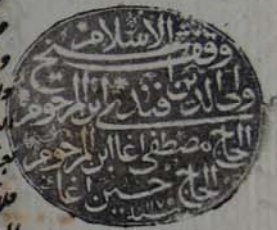 وقف شيخ الاسلام
ولي الدين افندي ابن المرحوم
الحاج مصطفى اغا ابن المرحوم
الحاج حسين اغا
سنه ١١٧٥